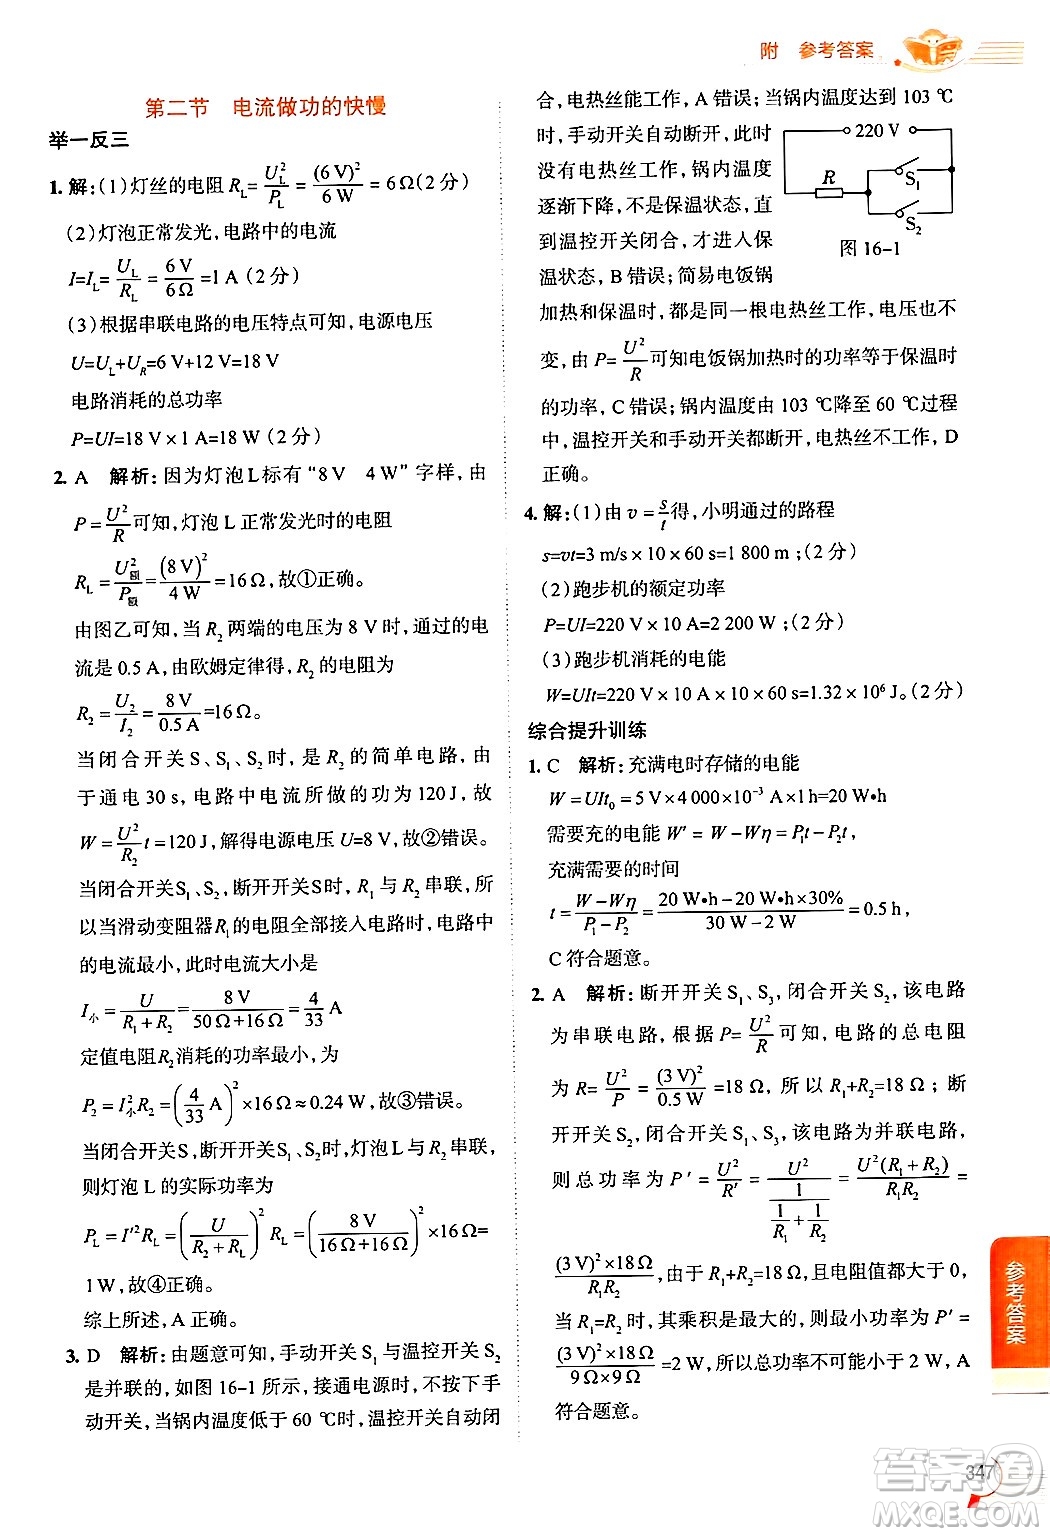 附 参考答案
第二节 电流做功的快慢
举一反三
1. 解:(1)灯丝的电阻 R_L=U_L²/P_L=(6 V)²/6 W=6 Ω(2 分)
(2)灯泡正常发光,电路中的电流
I=I_L=U_L/R_L=6 V/6 Ω=1 A(2 分)
(3)根据串联电路的电压特点可知,电源电压
U=U_L+U_R=6 V+12 V=18 V
电路消耗的总功率
P=UI=18 V×1 A=18 W(2 分)
2. A 解析:因为灯泡L标有“8 V 4 W”字样,由
P=U²/R可知,灯泡 L 正常发光时的电阻
R_L=U_额²/P_额=(8 V)²/4 W=16 Ω,故①正确。
由图乙可知,当 R₂ 两端的电压为 8 V 时,通过的电
流是 0.5 A,由欧姆定律得,R₂的电阻为
R₂=U₂/I₂=8 V/0.5 A=16 Ω。
当闭合开关 S、S₁、S₂时,是 R₂ 的简单电路,由
于通电 30 s,电路中电流所做的功为 120 J,故
W=U²/R₂ t=120 J,解得电源电压 U=8 V,故②错误。
当闭合开关S₁、S₂,断开开关S时,R₁与R₂串联,所
以当滑动变阻器R₁的电阻全部接入电路时,电路中
的电流最小,此时电流大小是
I_小=U/(R₁+R₂)=8 V/(50 Ω+16 Ω)=4/33 A
定值电阻R₂消耗的功率最小,为
P₂=I_小²R₂=(4/33 A)²×16 Ω≈0.24 W,故③错误。
当闭合开关 S,断开开关S₁、S₂时,灯泡 L 与 R₂ 串联,
则灯泡 L 的实际功率为
P_L=I′²R_L=(U/(R₂+R_L))²R_L=(8 V/(16 Ω+16 Ω))²×16 Ω=
1 W,故④正确。
综上所述,A 正确。
3. D 解析:由题意可知,手动开关 S₁ 与温控开关 S₂
是并联的,如图 16-1 所示,接通电源时,用手按下手
动开关,当锅内温度低于 60 ℃时,温控开关自动闭
合,电热丝能工作,A 错误;当锅内温度达到 103 ℃
时,手动开关自动断开,此时
没有电热丝工作,锅内温度
逐渐下降,不是保温状态,直
到温控开关闭合,才进入保
温状态,B 错误;简易电饭锅
220 V
R
S₁
S₂
图 16-1
加热和保温时,都是同一根电热丝工作,电压也不
变,由 P=U²/R可知电饭锅加热时的功率等于保温时
的功率,C 错误;锅内温度由 103 ℃降至 60 ℃过程
中,温控开关和手动开关都断开,电热丝不工作,D
正确。
4. 解:(1)由 v=s/t得,小明通过的路程
s=vt=3 m/s×10×60 s=1 800 m;(2 分)
(2)跑步机的额定功率
P=UI=220 V×10 A=2 200 W;(2 分)
(3)跑步机消耗的电能
W=UIt=220 V×10 A×10×60 s=1.32×10⁶ J。(2 分)
综合提升训练
1. C 解析:充满电时存储的电能
W=UIt₀=5 V×4 000×10⁻³ A×1 h=20 W·h
需要充的电能 W′=W-Wη=P₁t-P₂t,
充满需要的时间
t=(W-Wη)/(P₁-P₂)=(20 W·h-20 W·h×30%)/(30 W-2 W)=0.5 h,
C 符合题意。
2. A 解析:断开开关 S₁、S₃,闭合开关 S₂,该电路
为串联电路,根据 P=U²/R可知,电路的总电阻
为 R=U²/P=(3 V)²/0.5 W=18 Ω,所以 R₁+R₂=18 Ω;断
开开关 S₂,闭合开关 S₁、S₃,该电路为并联电路,
则总功率为 P′=U²/R′=U²/(1/(1/R₁+1/R₂))=U²(R₁+R₂)/(R₁R₂)=
(3 V)²×18 Ω/(R₁R₂),由于 R₁+R₂=18 Ω,且电阻值都大于 0,
当 R₁=R₂时,其乘积是最大的,则最小功率为 P′=
(3 V)²×18 Ω/(9 Ω×9 Ω)=2 W,所以总功率不可能小于 2 W,A
符合题意。
参考答案
347
答案圈
MXQE.COM